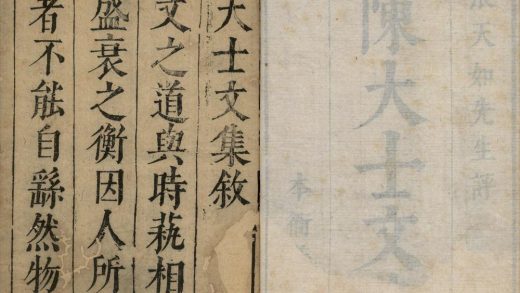 天如先生評
陳大士文
本衙
大士文集敘
文之道與時蓺相
盛衰之衡因人所
者不能自繇然物